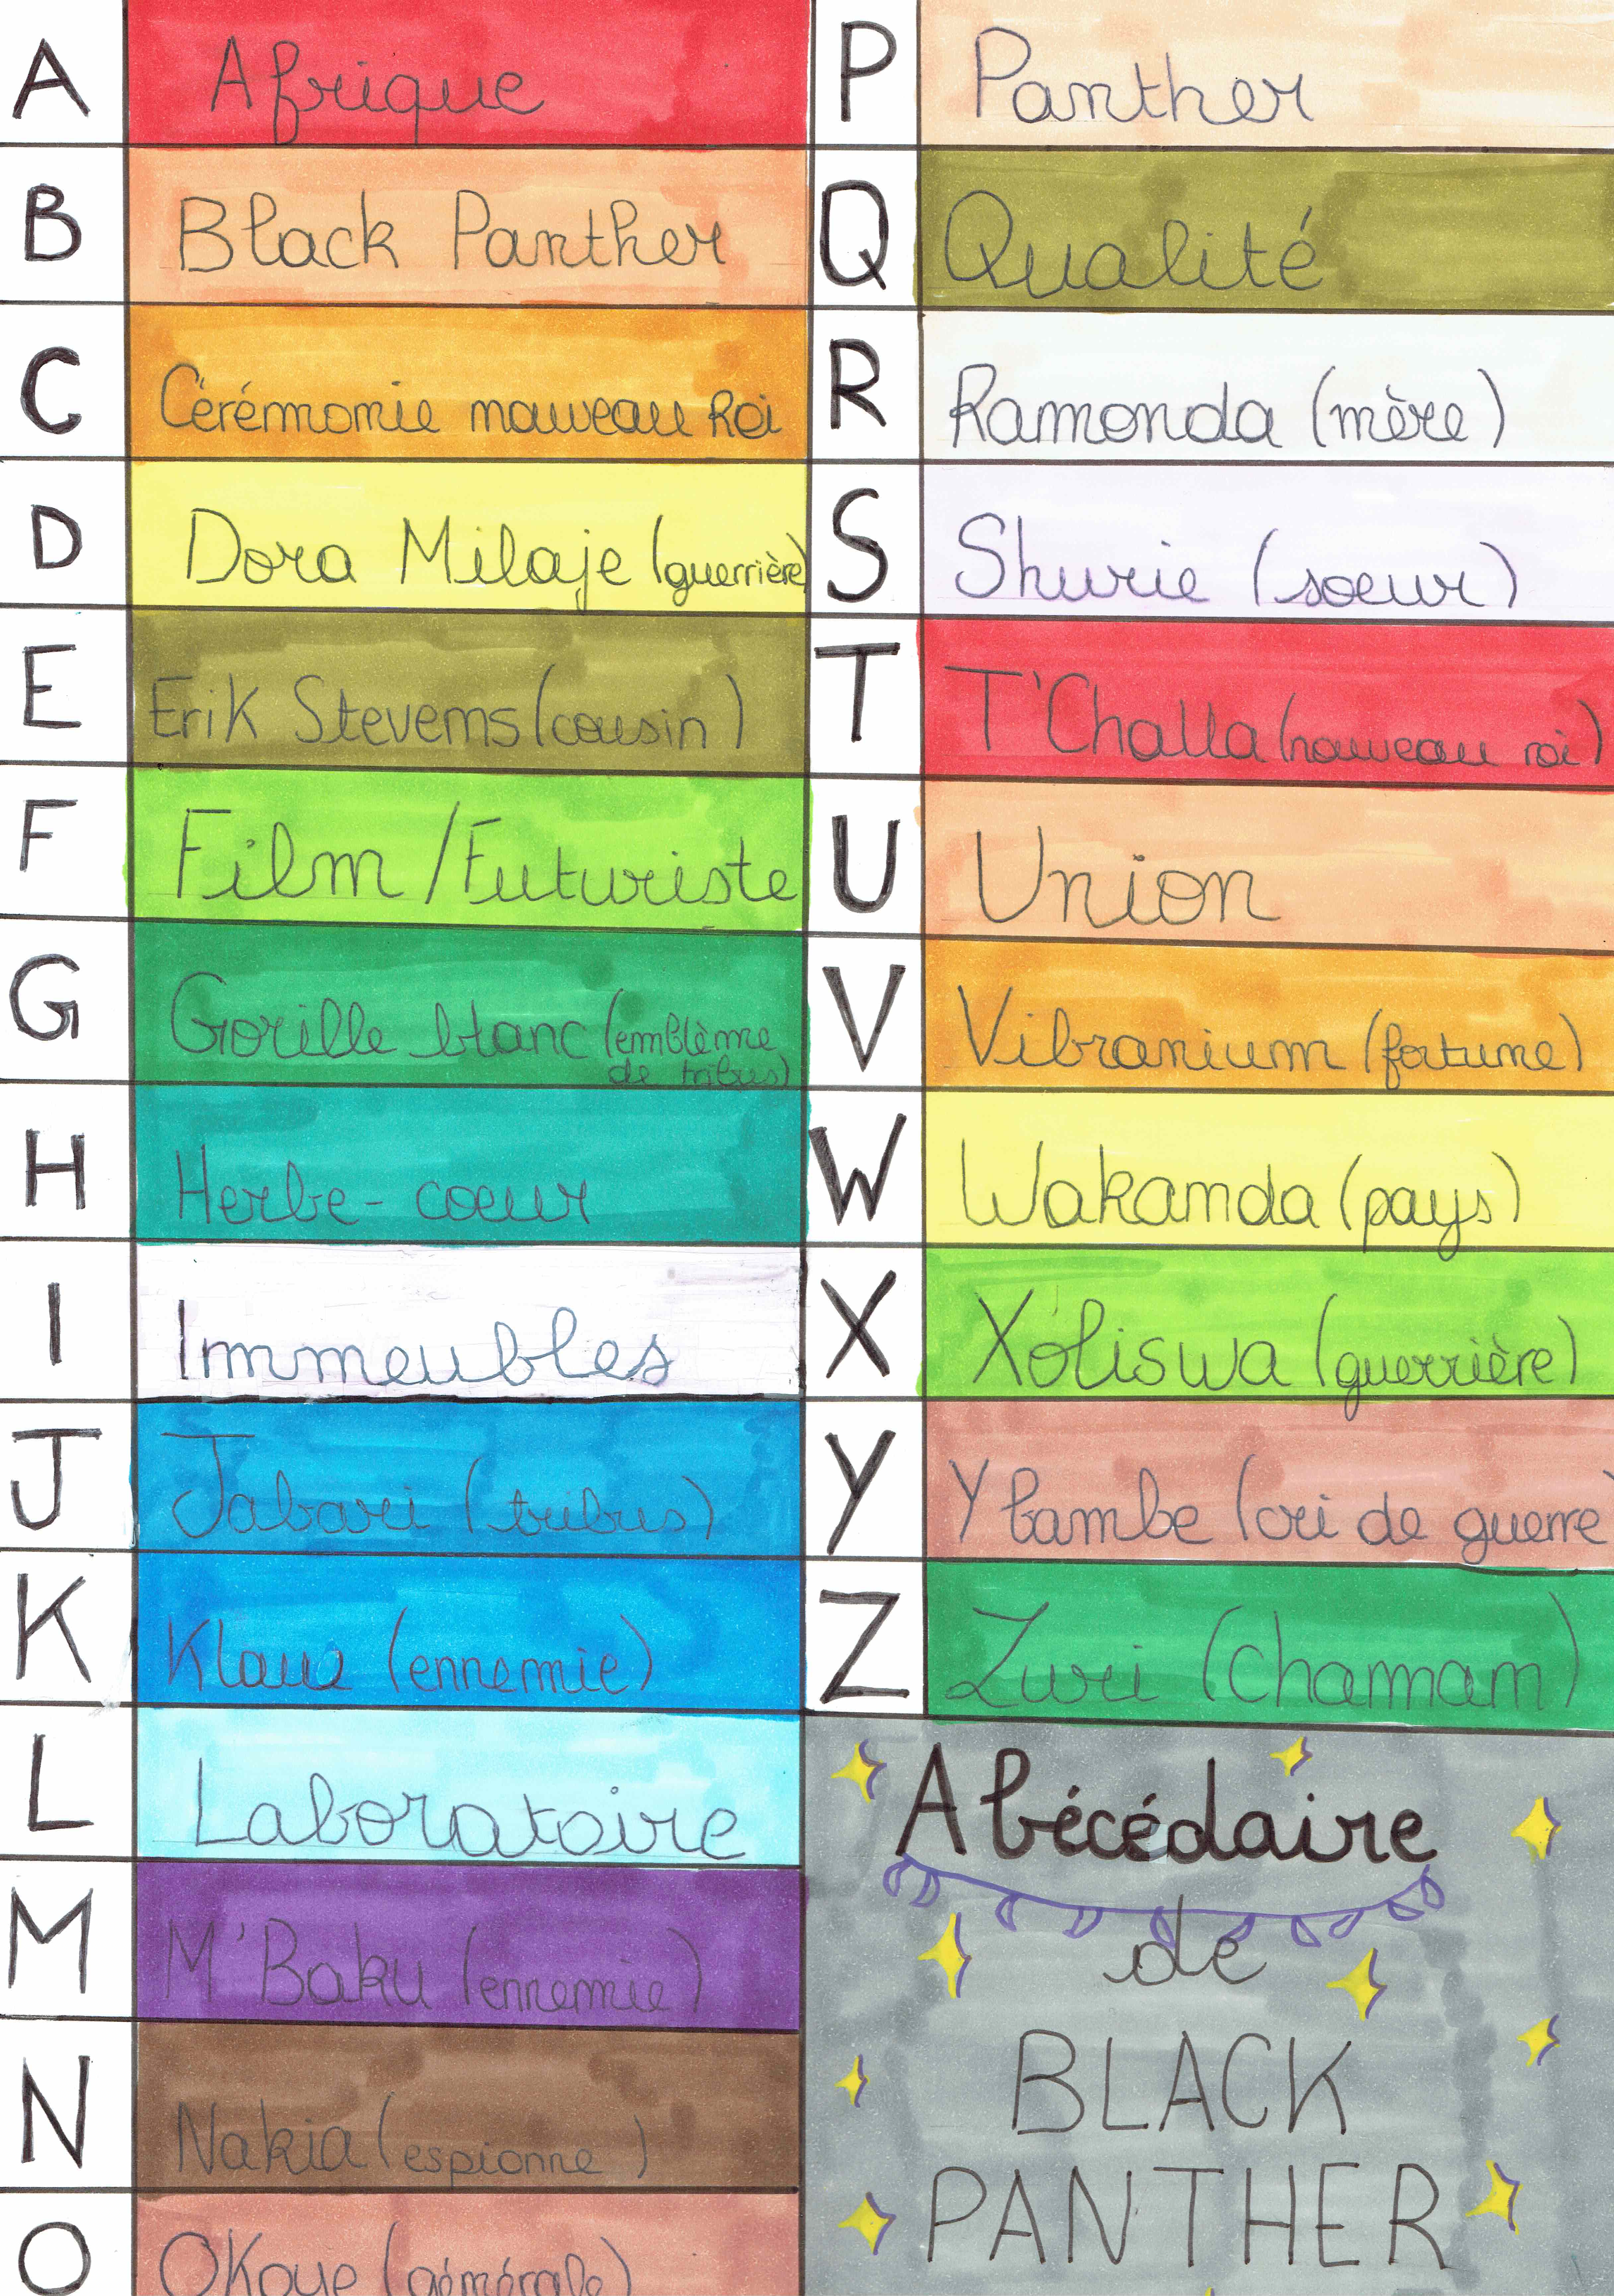 A Afrique
B Black Panther
C Cérémonie nouveau Roi
D Dora Milaje (guerrière)
E Erik Stevens (cousin)
F Film / Futuriste
G Gorille blanc (emblème
de tribus)
H Herbe-coeur
I Immeubles
J Jabari (tribus)
K Klaue (ennemie)
L Laboratoire
M M'Baku (ennemie)
N Nakia (espionne)
O OKoye (générale)
P Panther
Q Qualité
R Ramonda (mère)
S Shurie (soeur)
T T'Challa (nouveau roi)
U Union
V Vibranium (fortune)
W Wakanda (pays)
X Xoliswa (guerrière)
Y Ybambe (cri de guerre)
Z Zuri (chaman)
Abécédaire
de
BLACK
PANTHER